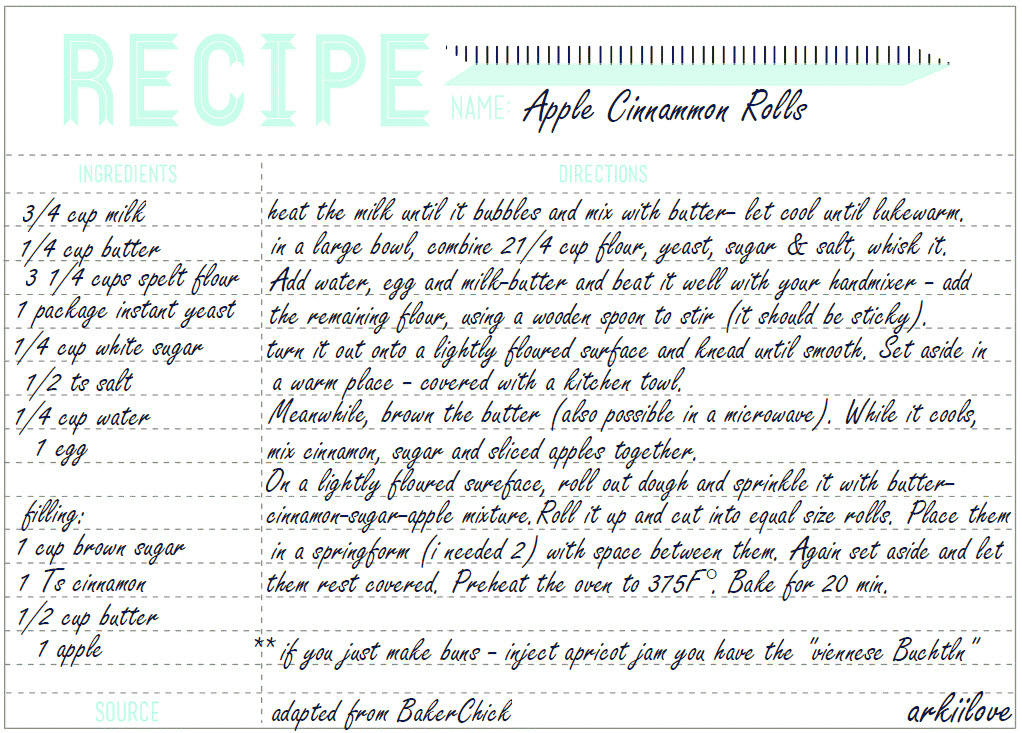 RECIPE
NAME: Apple Cinnammon Rolls
INGREDIENTS
3/4 cup milk
1/4 cup butter
3 1/4 cups spelt flour
1 package instant yeast
1/4 cup white sugar
1/2 ts salt
1/4 cup water
1 egg
filling:
1 cup brown sugar
1 Ts cinnamon
1/2 cup butter
1 apple
DIRECTIONS
heat the milk until it bubbles and mix with butter- let cool until lukewarm.
in a large bowl, combine 21/4 cup flour, yeast, sugar & salt, whisk it.
Add water, egg and milk-butter and beat it well with your handmixer - add
the remaining flour, using a wooden spoon to stir (it should be sticky).
turn it out onto a lightly floured surface and knead until smooth. Set aside in
a warm place - covered with a kitchen towl.
Meanwhile, brown the butter (also possible in a microwave). While it cools,
mix cinnamon, sugar and sliced apples together.
On a lightly floured sureface, roll out dough and sprinkle it with butter-
cinnamon-sugar-apple mixture. Roll it up and cut into equal size rolls. Place them
in a springform (i needed 2) with space between them. Again set aside and let
them rest covered. Preheat the oven to 375F°. Bake for 20 min.
** if you just make buns - inject apricot jam you have the "viennese Buchtln"
SOURCE
adapted from BakerChick
arkiilove